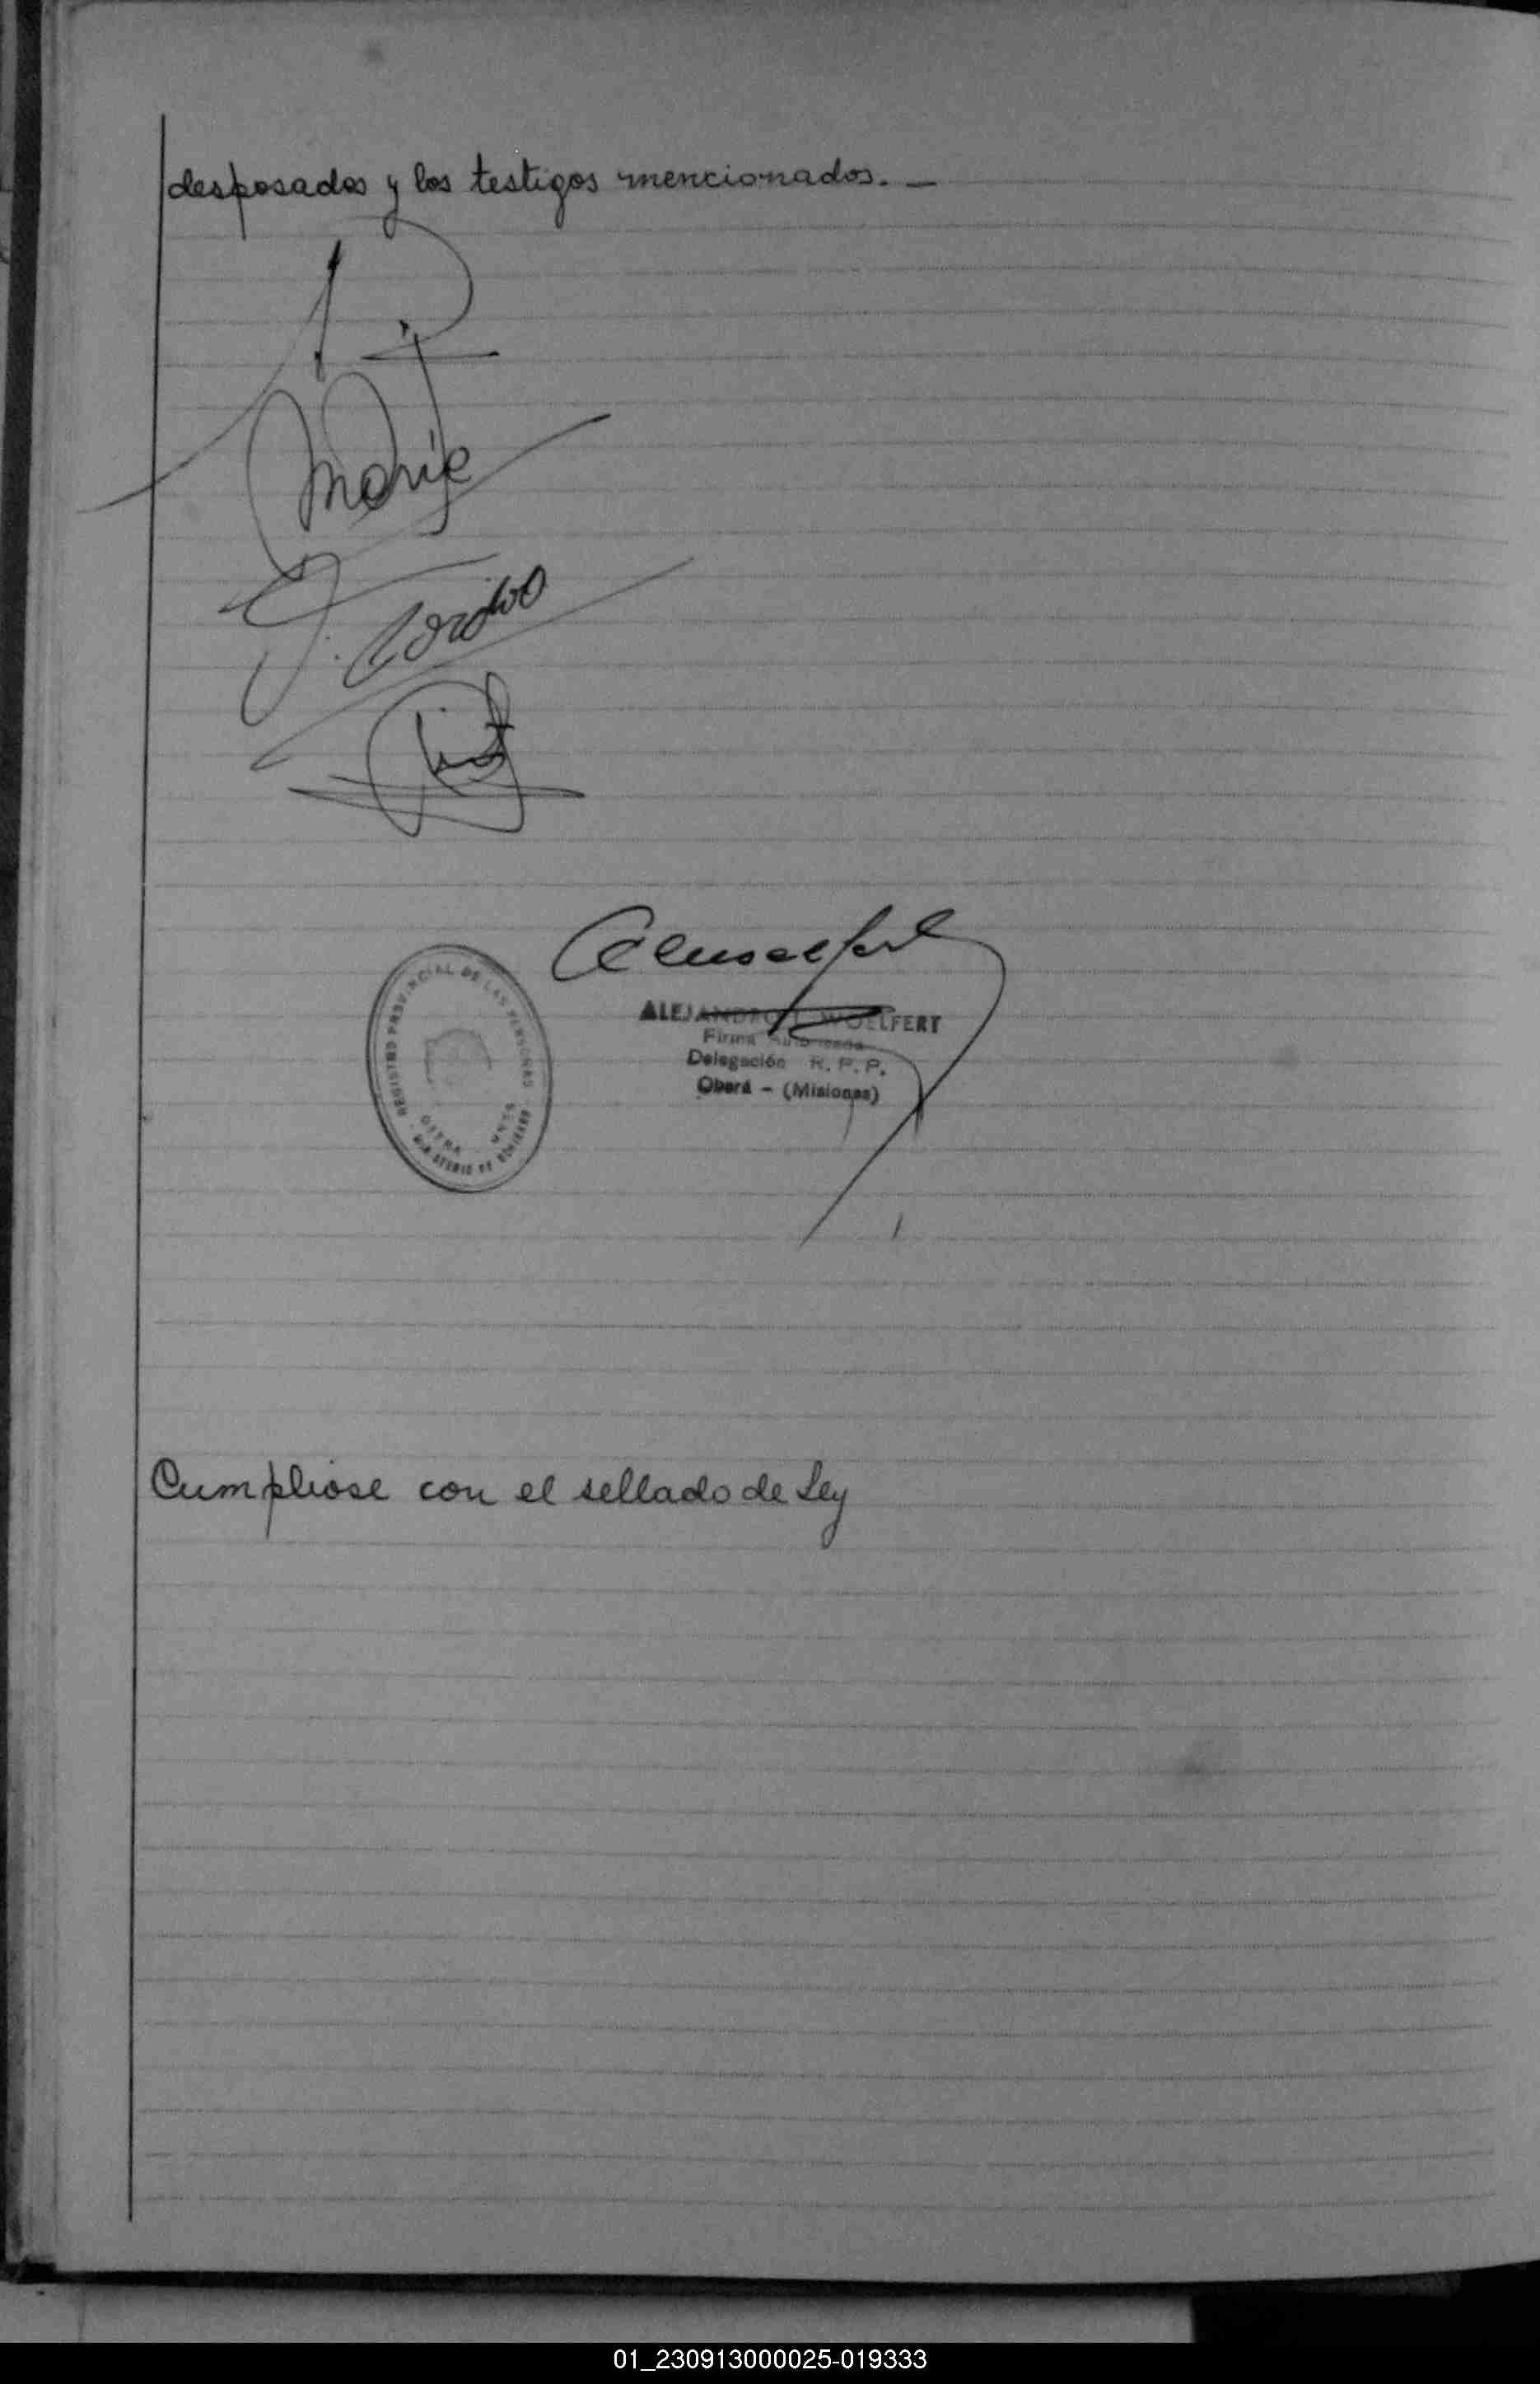 desposados y los testigos mencionados. —
Maria
REGISTRO PROVINCIAL DE LAS PERSONAS
ALEJANDRO WOELFERT
Firma Autorizada
Delegación R. P. P.
Oberá - (Misiones)
Cumpliose con el sellado de Ley
01_230913000025-019333